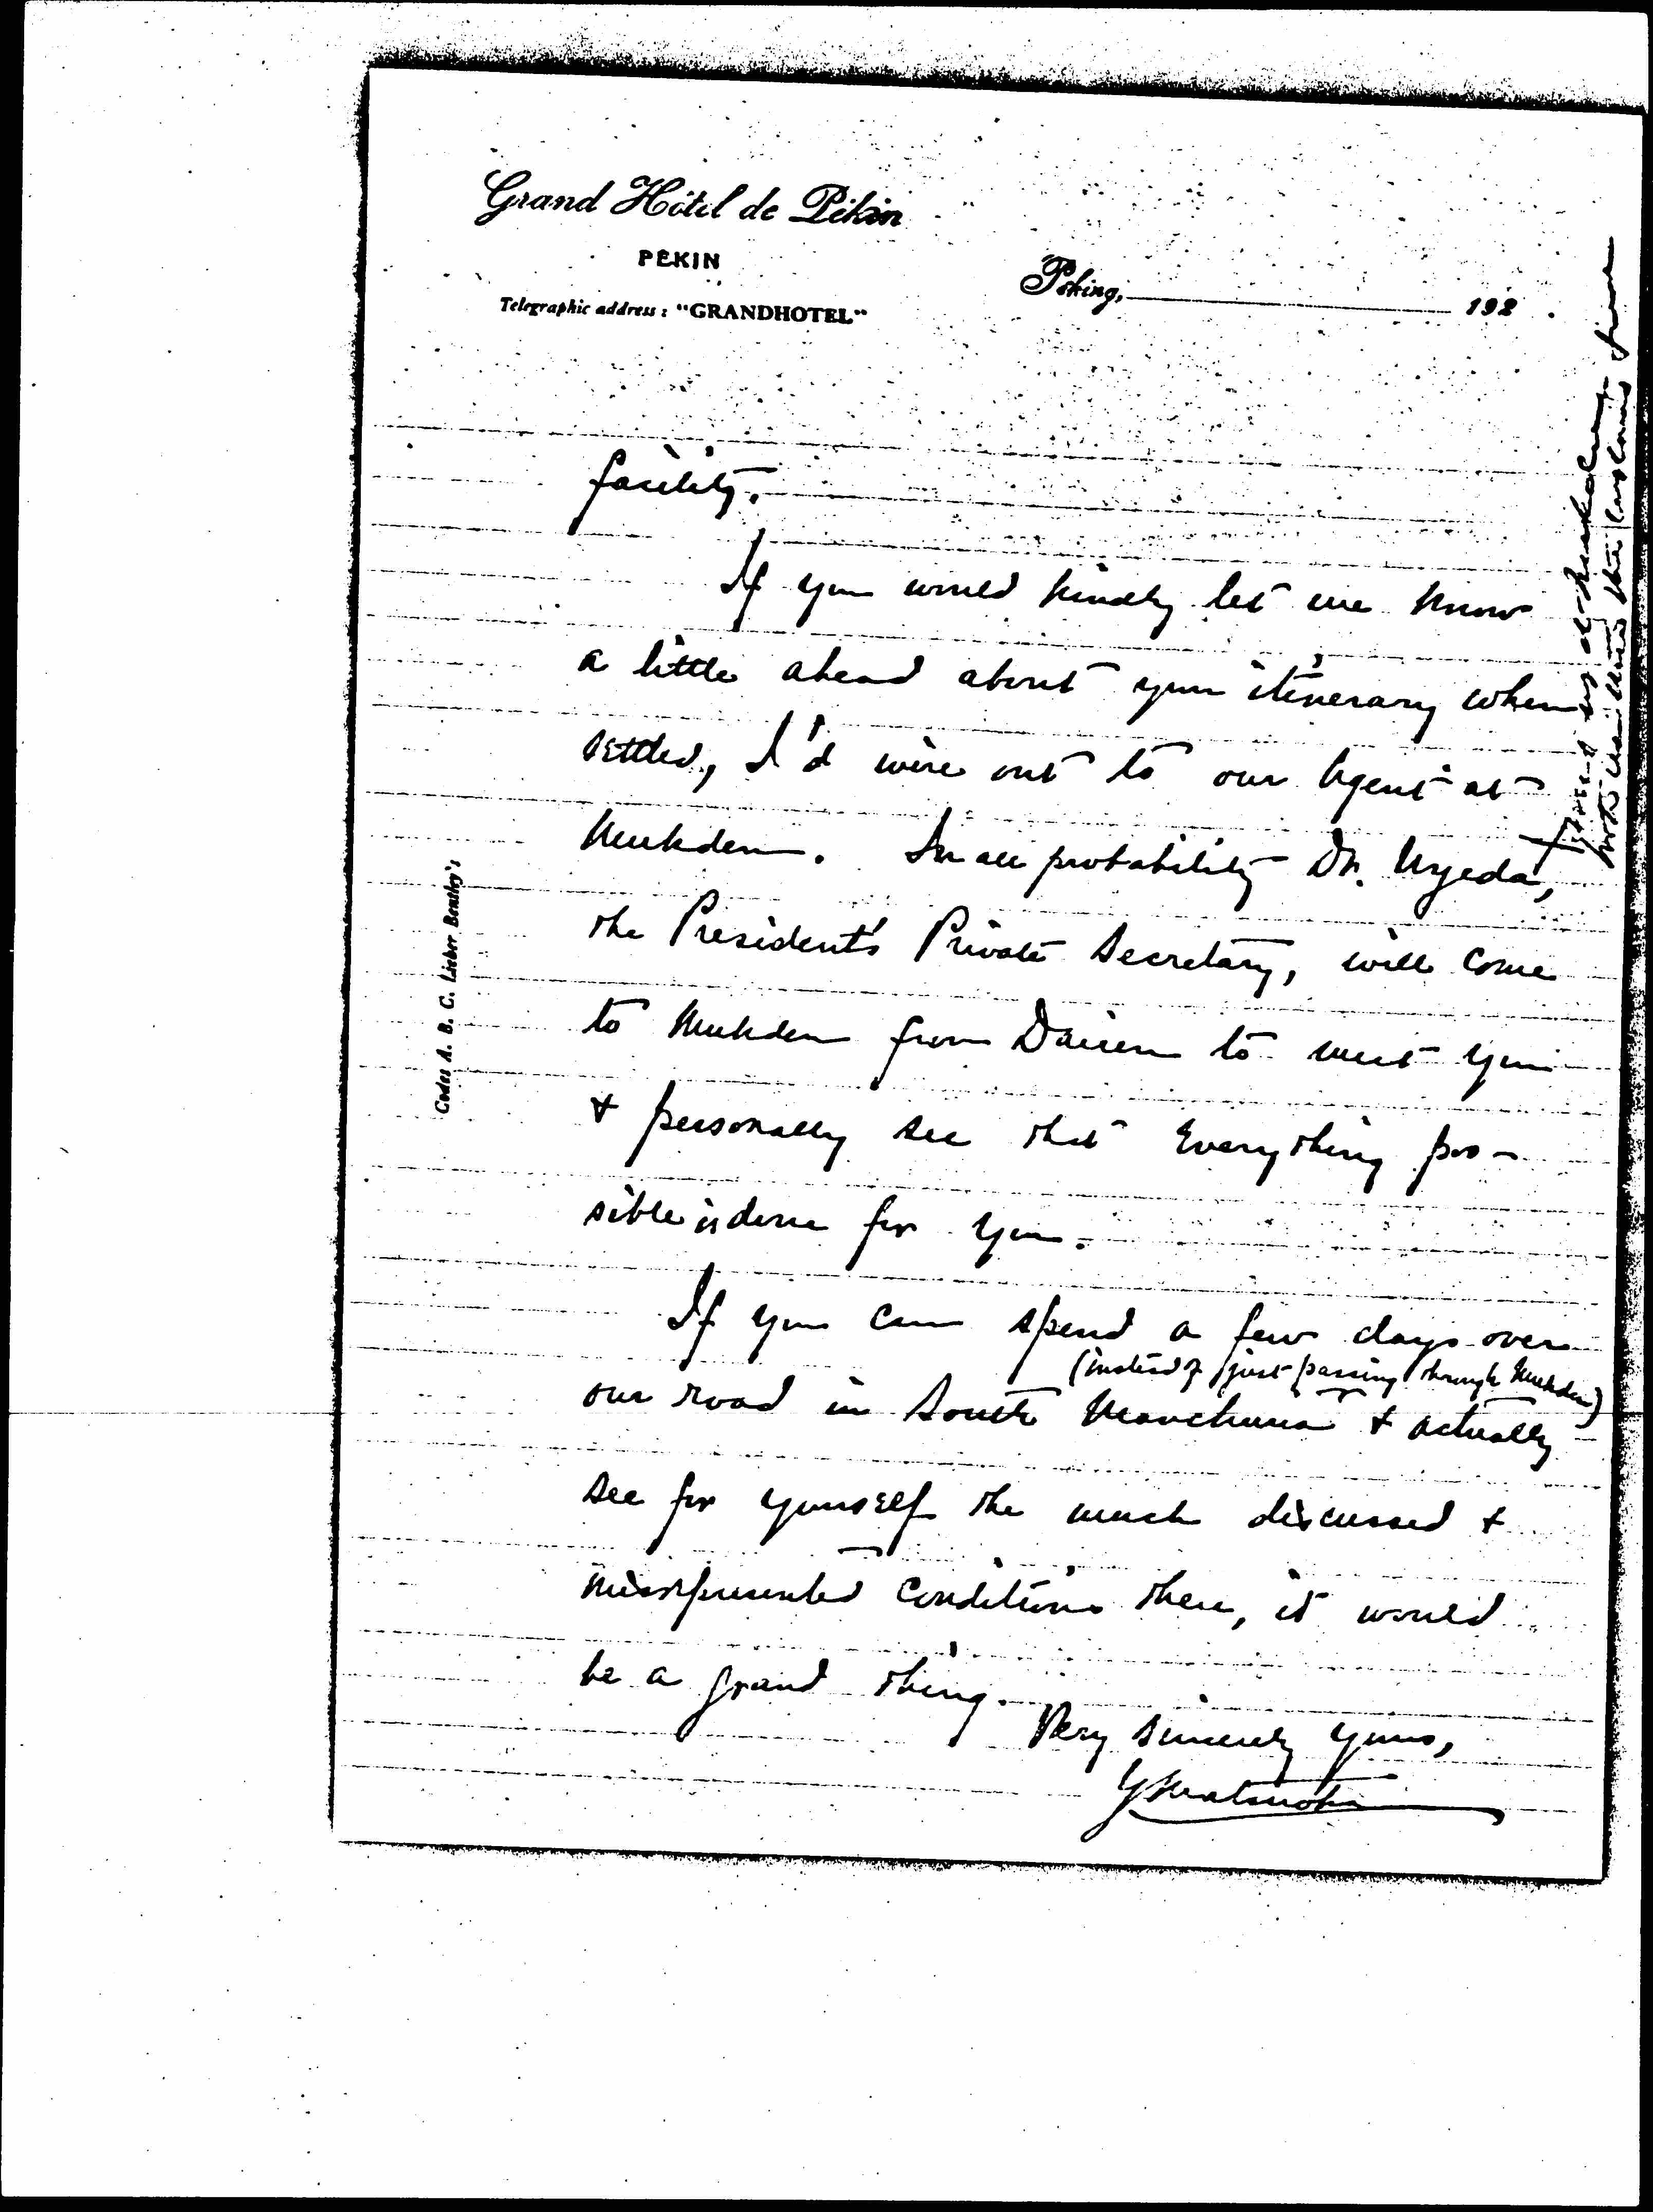 Grand Hôtel de Pékin
PEKIN
Telegraphic address : "GRANDHOTEL"
Peking, 192 .
Codes A. B. C. Lieber Bentley's
facility.
If you would kindly let me know
a little ahead about your itinerary when
settled, I'd wire out to our Agent at
Mukden. In all probability Dr. Uyeda,
the President's Private Secretary, will come
to Mukden from Dairen to meet you
& personally see that everything pos-
sible is done for you.
If you can spend a few days over
(instead of just passing through Mukden)
our road in South Manchuria & actually
see for yourself the much discussed &
misrepresented conditions there, it would
be a grand thing.
Very sincerely yours,
YMatsuoka